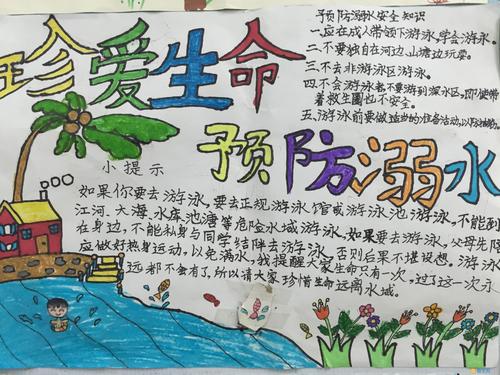 珍爱生命
预防溺水
预防溺水安全知识
一.应在成人带领下游泳,学会游泳。
二.不要独自在河边、山塘边玩耍。
三.不去非游泳区游泳。
四.不会游泳者,不要游到深水区,即使带
着救生圈也不安全。
五、游泳前要做适当的准备活动,以防抽筋。
小提示
如果你要去游泳,要去正规游泳馆或游泳池游泳,不能到
江河、大海、水库、池塘等危险水域游泳。如果要去游泳,父母先陪
在身边,不能私身与同学结伴去游泳,否则后果不堪设想,游泳
应做好热身运动,以免溺水,我提醒大家生命只有一次,过了这一次永
远都不会有了,所以请大家珍惜生命远离水域。